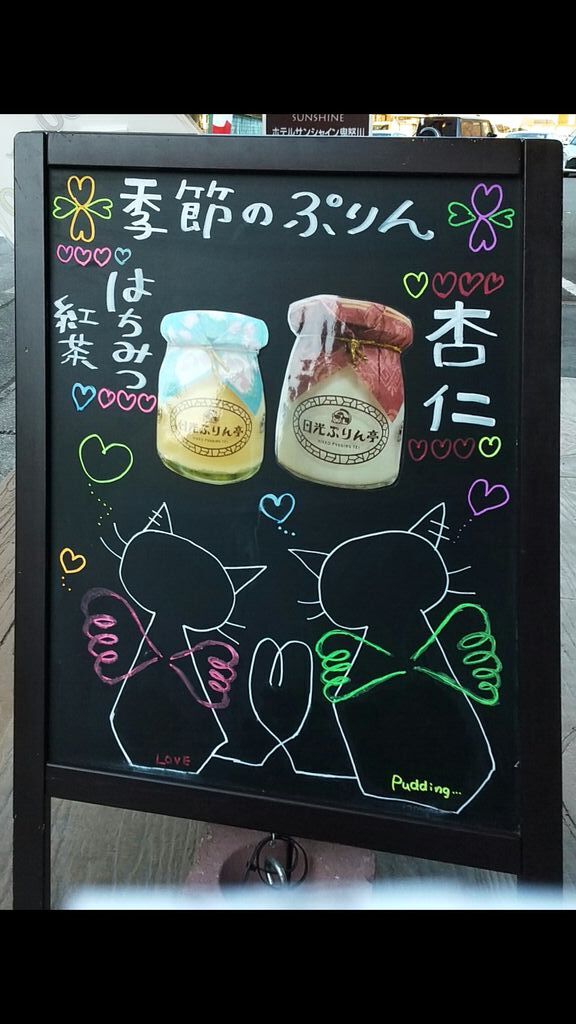 SUNSHINE
ホテルサンシャイン鬼怒川
季節のぷりん
はちみつ
紅茶
杏仁
日光ぷりん亭
NIKKO PUDDING TEI
日光ぷりん亭
NIKKO PUDDING TEI
LOVE
Pudding...